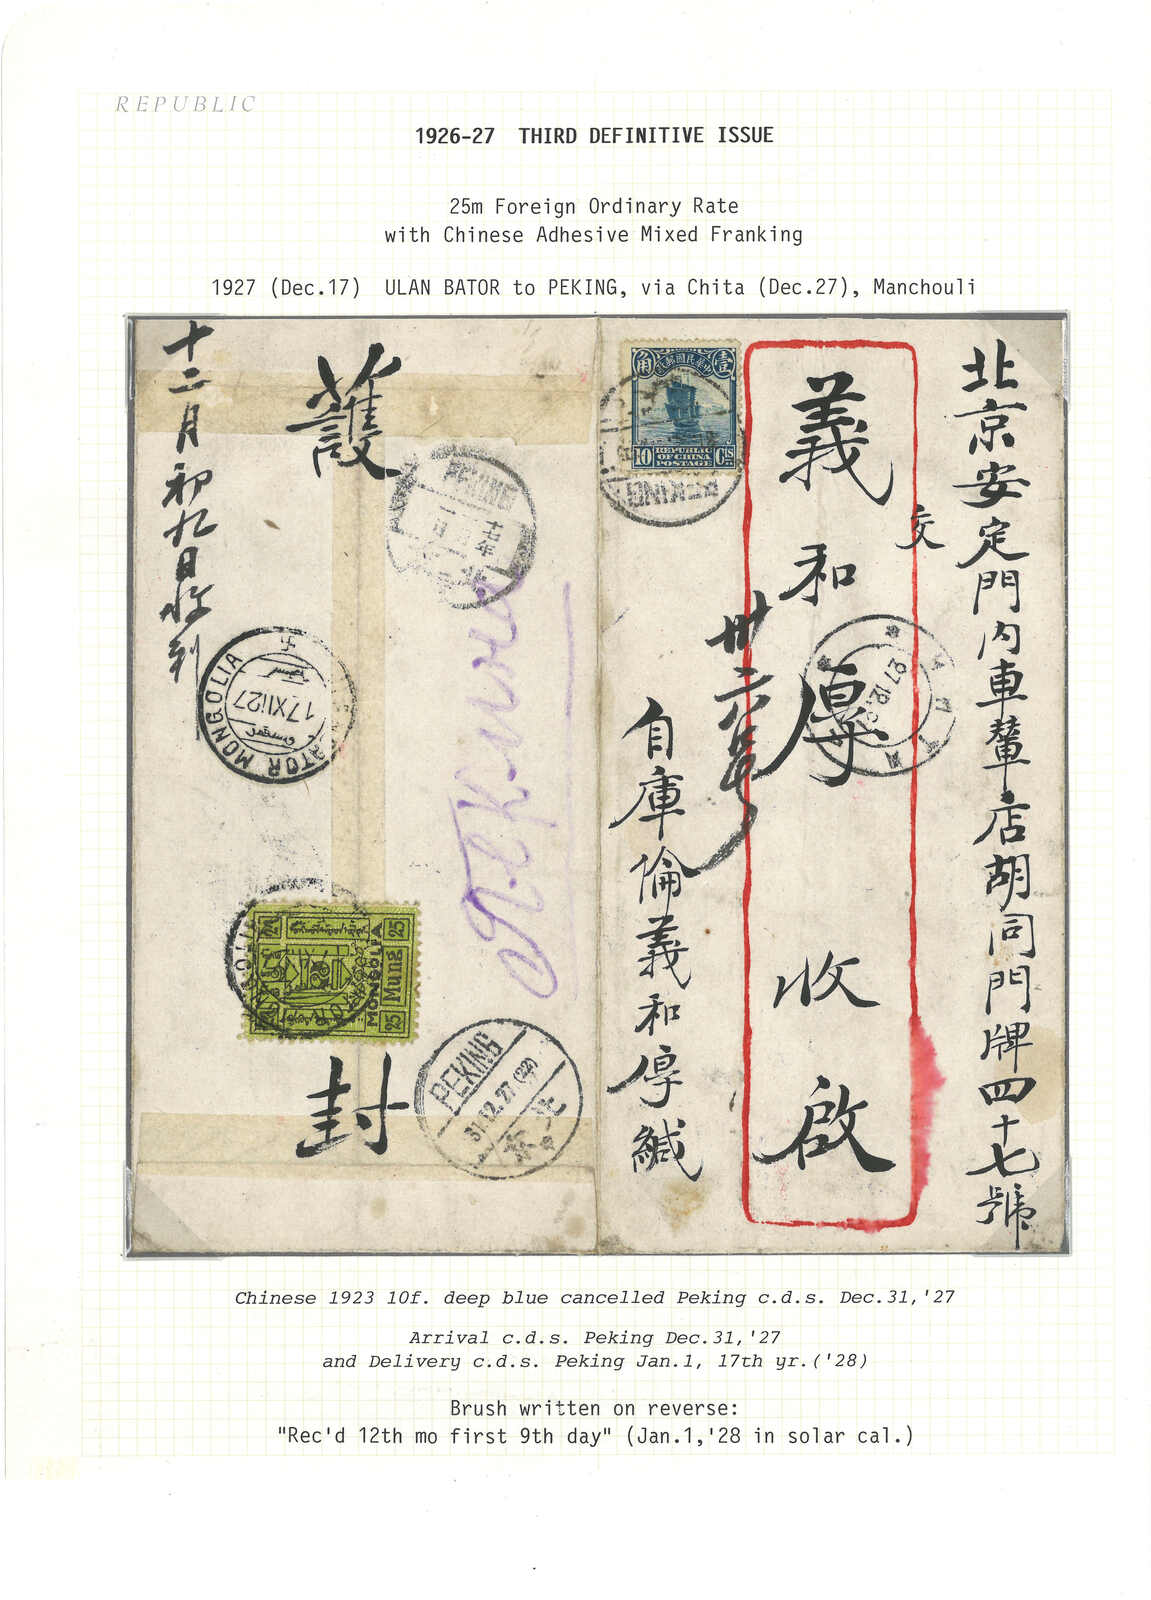 REPUBLIC
1926-27 THIRD DEFINITIVE ISSUE
25m Foreign Ordinary Rate
with Chinese Adhesive Mixed Franking
1927 (Dec.17) ULAN BATOR to PEKING, via Chita (Dec.27), Manchouli
北京安定門內車輦店胡同門牌四十七號
交
義和厚收啟
卅六号
自庫倫義和厚緘
壹
角
10 Cts
REPUBLIC
OF CHINA
POSTAGE
PEKING
27.12
護
封
十二月初九日收到
PEKING
七年
月
日
Пекин
卐
BATOR MONGOLIA
17XII27
25
25
MONGOLIA
Mung
PEKING
31.12.27 (22)
北京
Chinese 1923 10f. deep blue cancelled Peking c.d.s. Dec.31,'27
Arrival c.d.s. Peking Dec.31,'27
and Delivery c.d.s. Peking Jan.1, 17th yr.('28)
Brush written on reverse:
"Rec'd 12th mo first 9th day" (Jan.1,'28 in solar cal.)